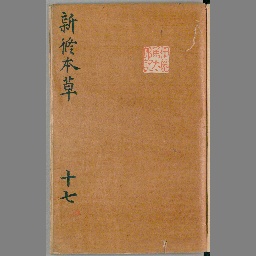 新修本草
十七